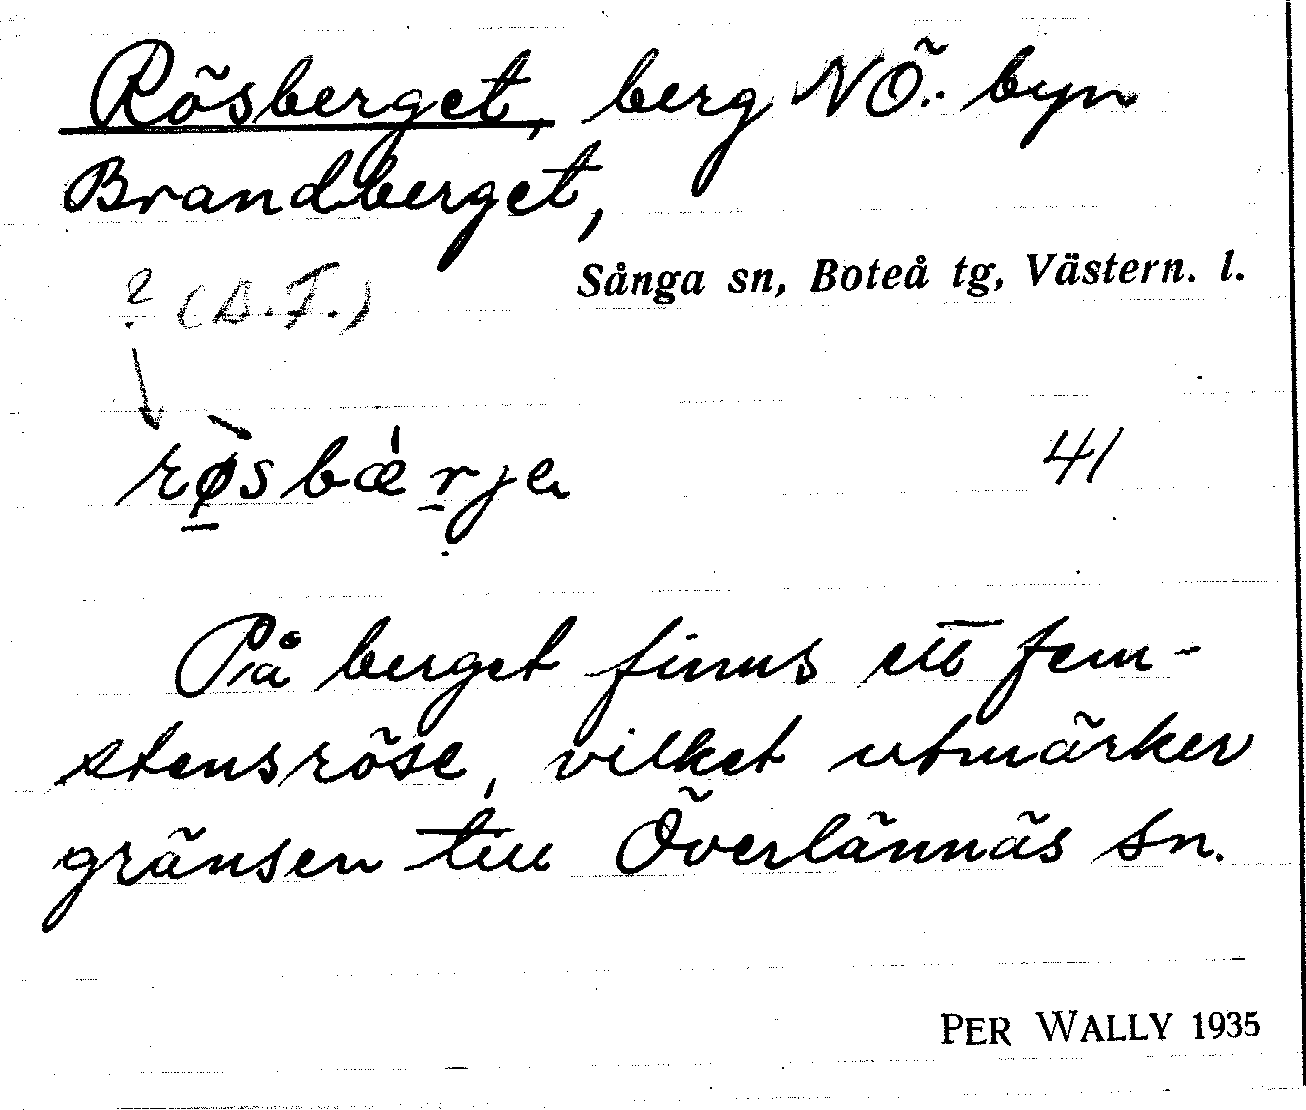 Rösberget, berg NÖ. byn
Brandberget,
Sånga sn, Boteå tg, Västern. l.
? (D.F.)
røsbæ̍rje 41
På berget finns ett fem-
stensröse, vilket utmärker
gränsen till Överlännäs sn.
PER WALLY 1935